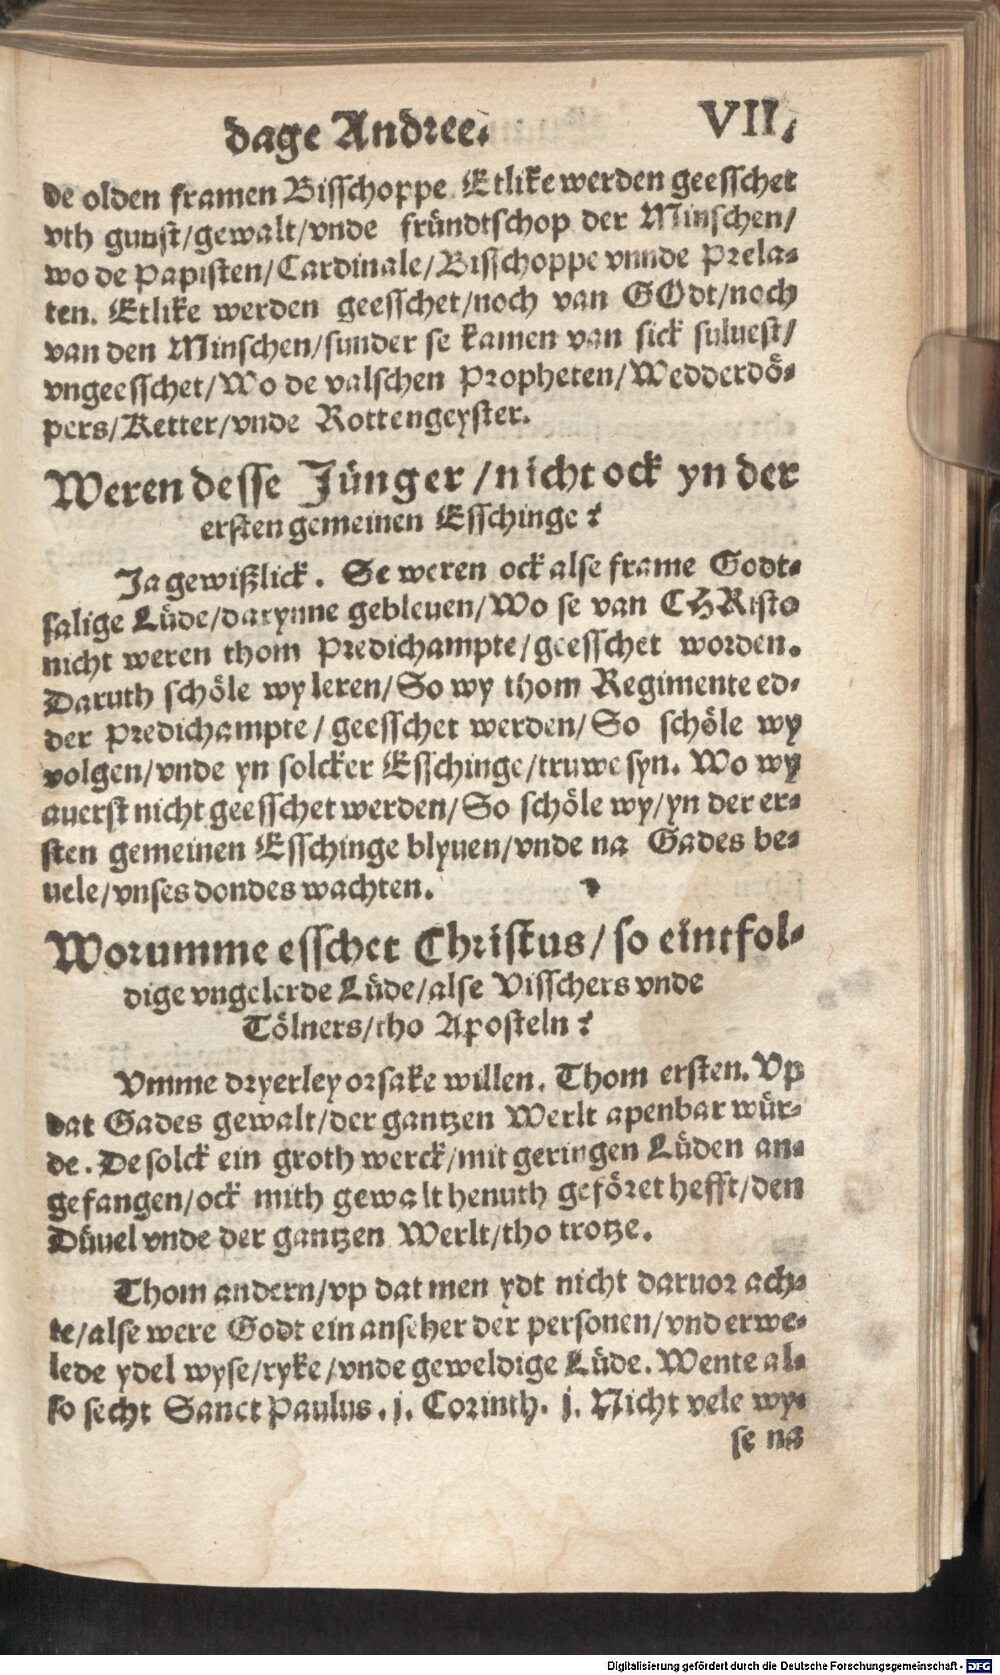 dage Andree. VII.
de olden framen Bisschoppe. Etlike werden geesschet
vth gunst/gewalt/vnde fründtschop der Minschen/
wo de Papisten/Cardinale/Bisschoppe vnnde Prela-
ten. Etlike werden geesschet/noch van GOdt/noch
van den Minschen/sunder se kamen van sick suluest/
vngeesschet/Wo de valschen Propheten/Wedderdö-
pers/Ketter/vnde Rottengeyster.
Weren desse Jünger/nicht ock yn der
ersten gemeinen Esschinge?
Ja gewißlick. Se weren ock alse frame Godt-
salige Lüde/darynne gebleuen/Wo se van CHRisto
nicht weren thom Predichampte/geesschet worden.
Daruth schöle wy leren/So wy thom Regimente ed-
der Predichampte/geesschet werden/So schöle wy
volgen/vnde yn solcker Esschinge/truwe syn. Wo wy
auerst nicht geesschet werden/So schöle wy/yn der er-
sten gemeinen Esschinge blyuen/vnde na Gades be-
uele/vnses dondes wachten.
Worumme esschet Christus/so eintfol-
dige vngelerde Lüde/alse Visschers vnde
Tölners/tho Aposteln?
Vmme dryerley orsake willen. Thom ersten. Vp
dat Gades gewalt/der gantzen Werlt apenbar wür-
de. De solck ein groth werck/mit geringen Lüden an-
gefangen/ock mith gewalt henuth geföret hefft/den
Düuel vnde der gantzen Werlt/tho trotze.
Thom andern/vp dat men ydt nicht daruor ach-
te/alse were Godt ein anseher der personen/vnd erwe-
lede ydel wyse/ryke/vnde geweldige Lüde. Wente al-
so secht Sanct Paulus. j. Corinth. j. Nicht vele wy-
se na
Digitalisierung gefördert durch die Deutsche Forschungsgemeinschaft - DFG